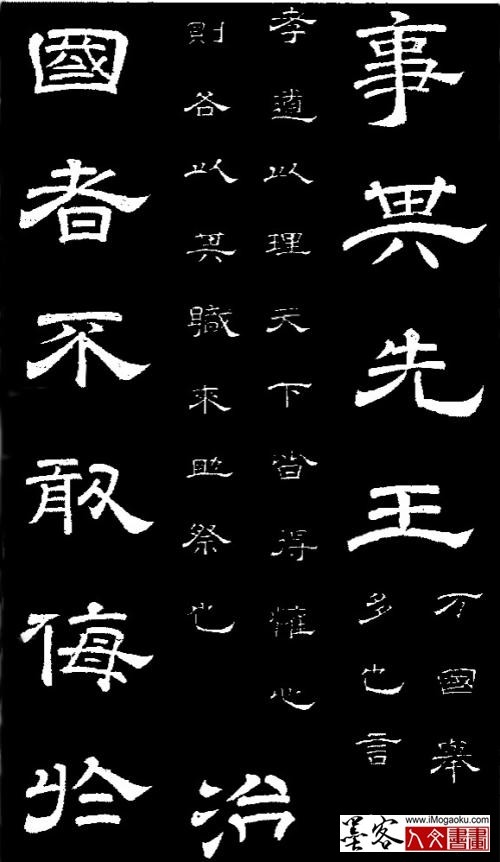 事其先王
万國舉
多也言
孝道以理天下皆得懽心
則各以其職來助祭也
治
國者不敢侮於
墨客
www.iMogaoku.com
人文書畫